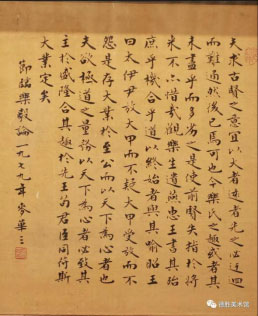 夫求古賢之意宜以大者遠者先之必迂回
而難通然後已焉可也今樂氏之趣或者其
未盡乎而多劣之是使前賢失指於將
來不亦惜哉觀樂生遺燕惠王書其殆
庶乎機合乎道以終始者與其喻昭王
曰伊尹放大甲而不疑大甲受放而不
怨是存大業於至公而以天下為心者也
夫欲極道之量務以天下為心者必致其
主於盛隆合其趣於先王苟君臣同符斯
大業定矣
節臨樂毅論一九七九年麥華三
德胜美术馆